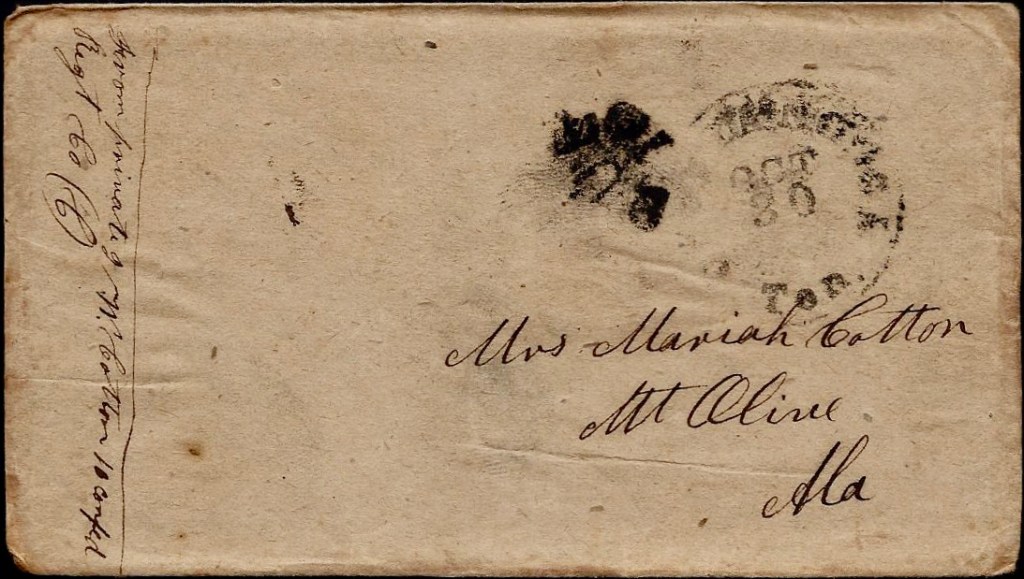 From private J. N. Cotton 10 confed
Regt Co (C)
OCT
30
Ten.
Mrs Mariah Cotton
Mt Olive
Ala